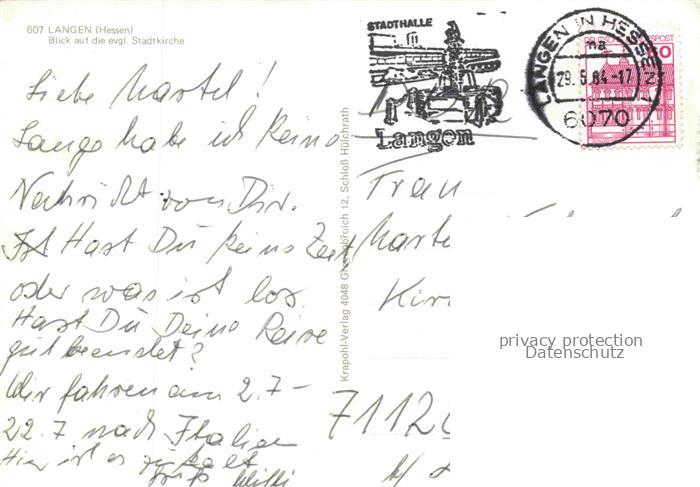 607 LANGEN (Hessen)
Blick auf die evgl. Stadtkirche
STADTHALLE
Langen
LANGEN IN HESSEN
na
29.6.84-17
6070
Liebe Martel!
Lange habe ich keine
Nachricht von Dir.
Ist Hast Du keine Zeit
oder was ist los.
Hast Du Deine Reise
gut beendet?
Wir fahren am 2.7-
22.7 nach Italien
Hier ist es zu kalt
Gruß Willi
Krapohl-Verlag 4048 Grevenbroich 12, Schloß Hülchrath
Frau
Marte
Kir
7112
privacy protection
Datenschutz